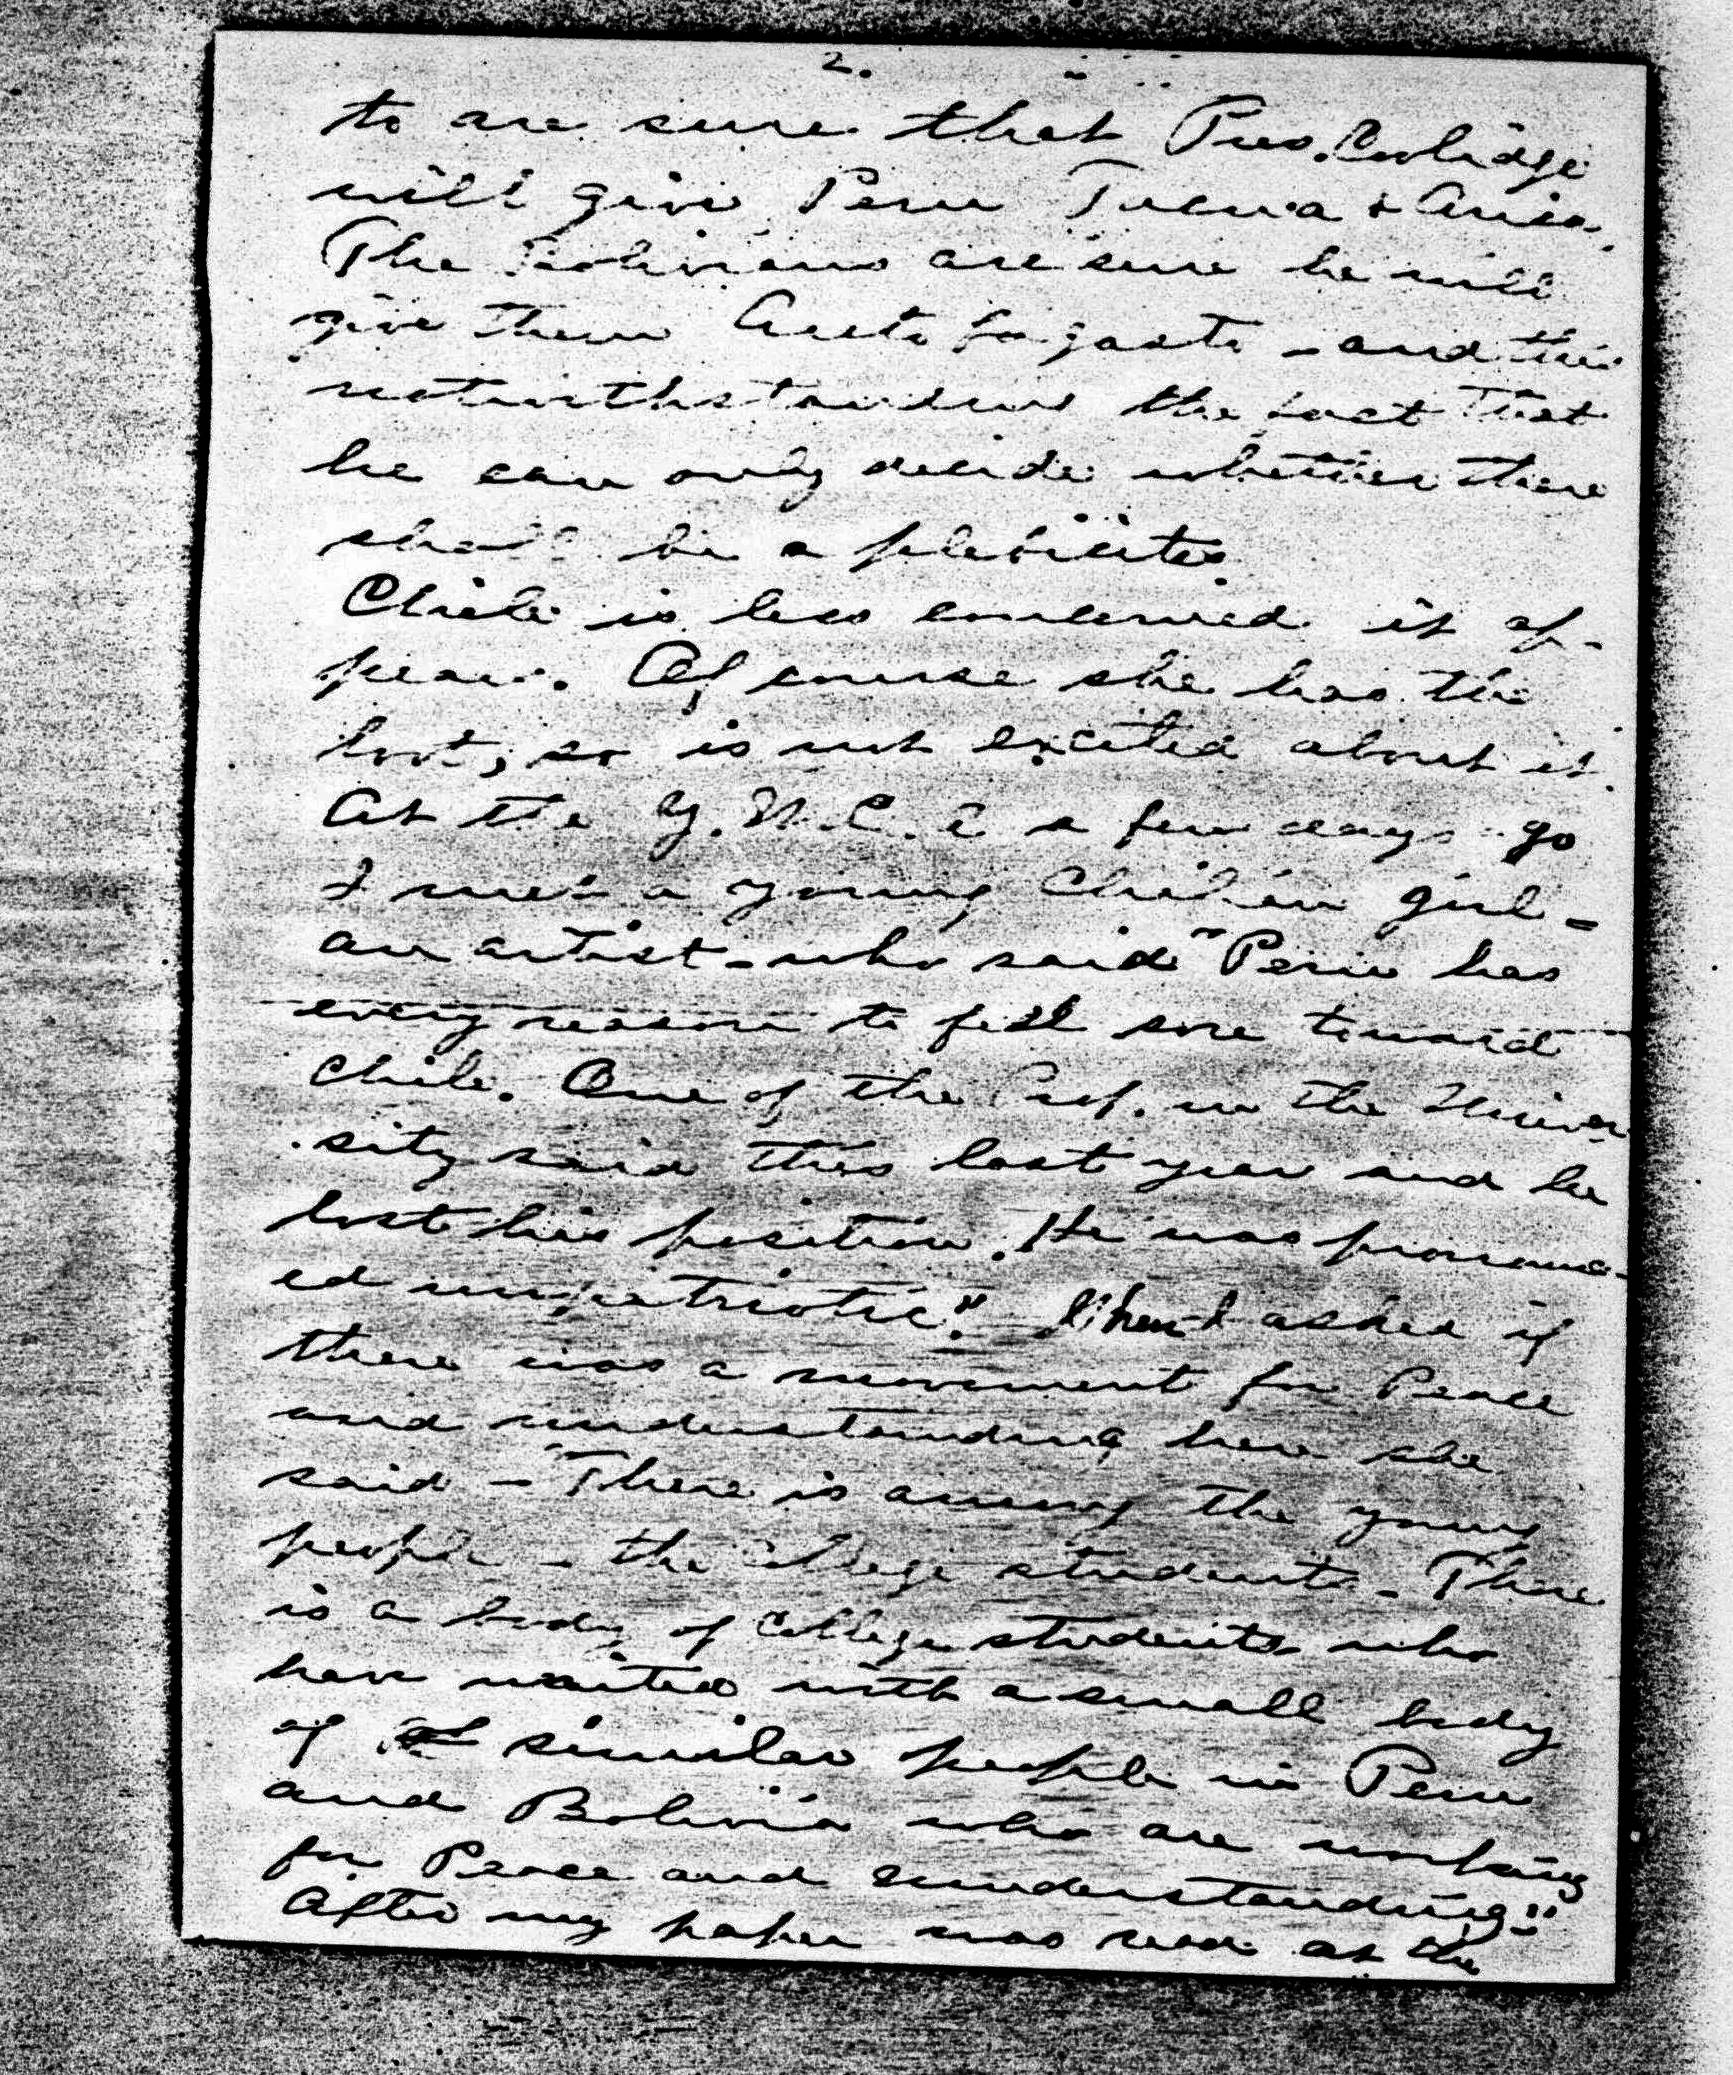 2.
to are sure that Pres. Coolidge
will give Peru Tacna & Arica.
The Bolivians are sure he will
give them Antofagasta - and this
notwithstanding the fact that
he can only decide whether there
shall be a plebiscite.
Chile is less concerned it ap-
pears. Of course she has the
loot, so is not excited about it.
At the Y.W.C.A a few days ago
I met a young Chilian girl -
an artist - who said "Peru has
every reason to feel sore toward
Chile. One of the Prof. in the Univer
sity said this last year and he
lost his position. He was pronounc-
ed unpatriotic." When I asked if
there was a movement for Peace
and understanding here she
said - "There is among the young
people - the College students - There
is a body of College students who
have united with a small body
of similar people in Peru
and Bolivia who are working
for Peace and understanding."
After my paper was read at the